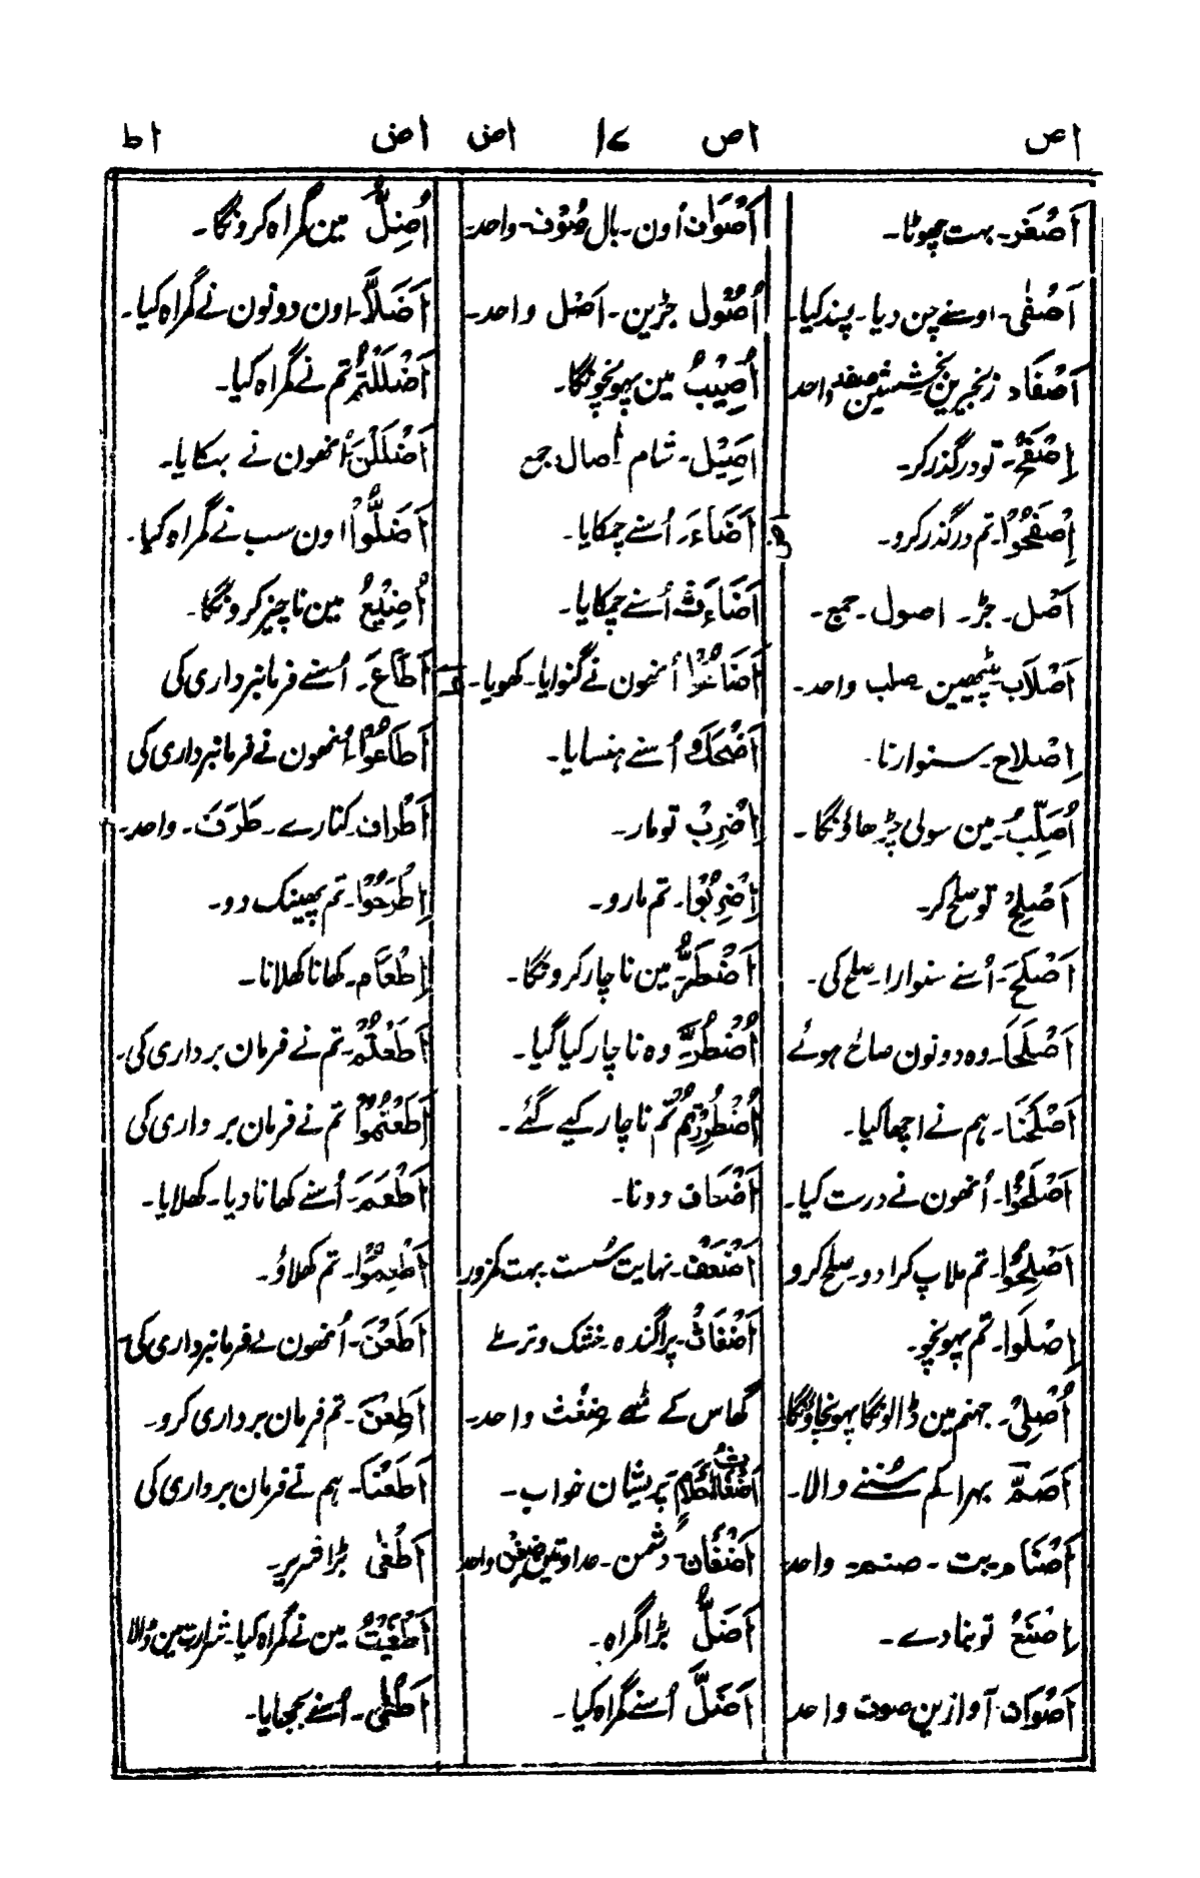 اص اص ۱۷ اض اض اط
اَصْغَر۔ بہت چھوٹا۔
اَصْفٰی۔ اوسنے چن دیا۔ پسند کیا۔
اَصْفَاد زنجیرین بخششین صفد واحد
اِصْفَحْ۔ تو درگذر کر۔
اِصْفَحُوْا۔ تم درگذر کرو۔
اَصْل۔ جڑ۔ اصول۔ جمع۔
اَصْلَاب۔ پٹھیین۔ صلب واحد۔
اِصْلاح۔ سنوارنا۔
اُصَلِّبُ۔ مین سولی چڑھاؤنگا۔
اَصْلِحْ تو صلح کر۔
اَصْلَحَ۔ اُسنے سنوارا۔ صلح کی۔
اَصْلَحَا۔ وہ دونون صالح ہوئے
اَصْلَحْنَا۔ ہم نے اچھا کیا۔
اَصْلَحُوْا۔ اُنھون نے درست کیا۔
اَصْلِحُوْا۔ تم ملاپ کرا دو۔ صلح کرو
اِصْلَوا۔ تم پہونچو۔
اُصْلِیْ۔ جہنم مین ڈالونگا پہونچاؤنگا
اَصَمّ بہرا کم سُننے والا۔
اَصْنَام۔ بت۔ صنم۔ واحد
اِصْنَعْ تو بنا دے۔
اَصْوَات۔ آوازین صوت واحد
اَصْوَاف اُون۔ بال صُوْف۔ واحد۔
اُصُوْل جڑین۔ اَصْل واحد۔
اُصِيْبُ مین پہونچونگا۔
اَصِيْل۔ شام اٰصال جمع
اض
اَضَآءَ۔ اُسنے چمکایا۔
اَضَآءَتْ اُسنے چمکایا۔
اَضَاعُوْا اُنھون نے گنوایا۔ کھویا۔
اَضْحَكَ اُسنے ہنسایا۔
اِضْرِبْ تو مار۔
اِضْرِبُوْا۔ تم مارو۔
اَضْطَرُّ۔ مین ناچار کرونگا۔
اُضْطُرَّ وہ ناچار کیا گیا۔
اُضْطُرِرْتُمْ تم ناچار کیے گئے۔
اَضْعَاف دونا۔
اَضْعَفْ۔ نہایت سُست بہت کمزور
اَضْغَاثْ۔ پراگندہ۔ خشک و تر
گھاس کے مٹھے ضِغْث واحد۔
پریشان خواب۔
اَضْغَان۔ دشمن۔ عداوتین ضِغْن واحد
اَضَلُّ بڑا گمراہ۔
اَضَلَّ اُسنے گمراہ کیا۔
اُضِلُّ مین گمراہ کرونگا۔
اَضَلَّا۔ اون دونون نے گمراہ کیا۔
اَضْلَلْتُمْ تم نے گمراہ کیا۔
اَضْلَلْنَ اُنھون نے بہکایا۔
اَضَلُّوْا اون سب نے گمراہ کیا۔
اُضِيْعُ مین ناچیز کرونگا۔
اط
اَطَاعَ۔ اُسنے فرمانبرداری کی
اَطَاعُوْا۔ اُنھون نے فرمانبرداری کی
اَطْراف۔ کنارے۔ طَرَف۔ واحد۔
اِطْرَحُوْا۔ تم پھینک دو۔
اِطْعَام۔ کھانا کھلانا۔
اَطَعْتُمْ۔ تم نے فرمان برداری کی۔
اَطَعْتُمُوْا تم نے فرمان برداری کی
اَطْعَمَ۔ اُسنے کھانا دیا۔ کھلایا۔
اَطْعِمُوْا۔ تم کھلاؤ۔
اَطَعْنَ۔ اُنھون نے فرمانبرداری کی۔
اَطِعْنَ۔ تم فرمان برداری کرو۔
اَطَعْنَا۔ ہم نے فرمان برداری کی
اَطْغٰی بڑا شریر۔
اَطْغَيْتُ مین نے گمراہ کیا۔ شرارت مین ڈالا
اَطْفٰی۔ اُسنے بجھایا۔